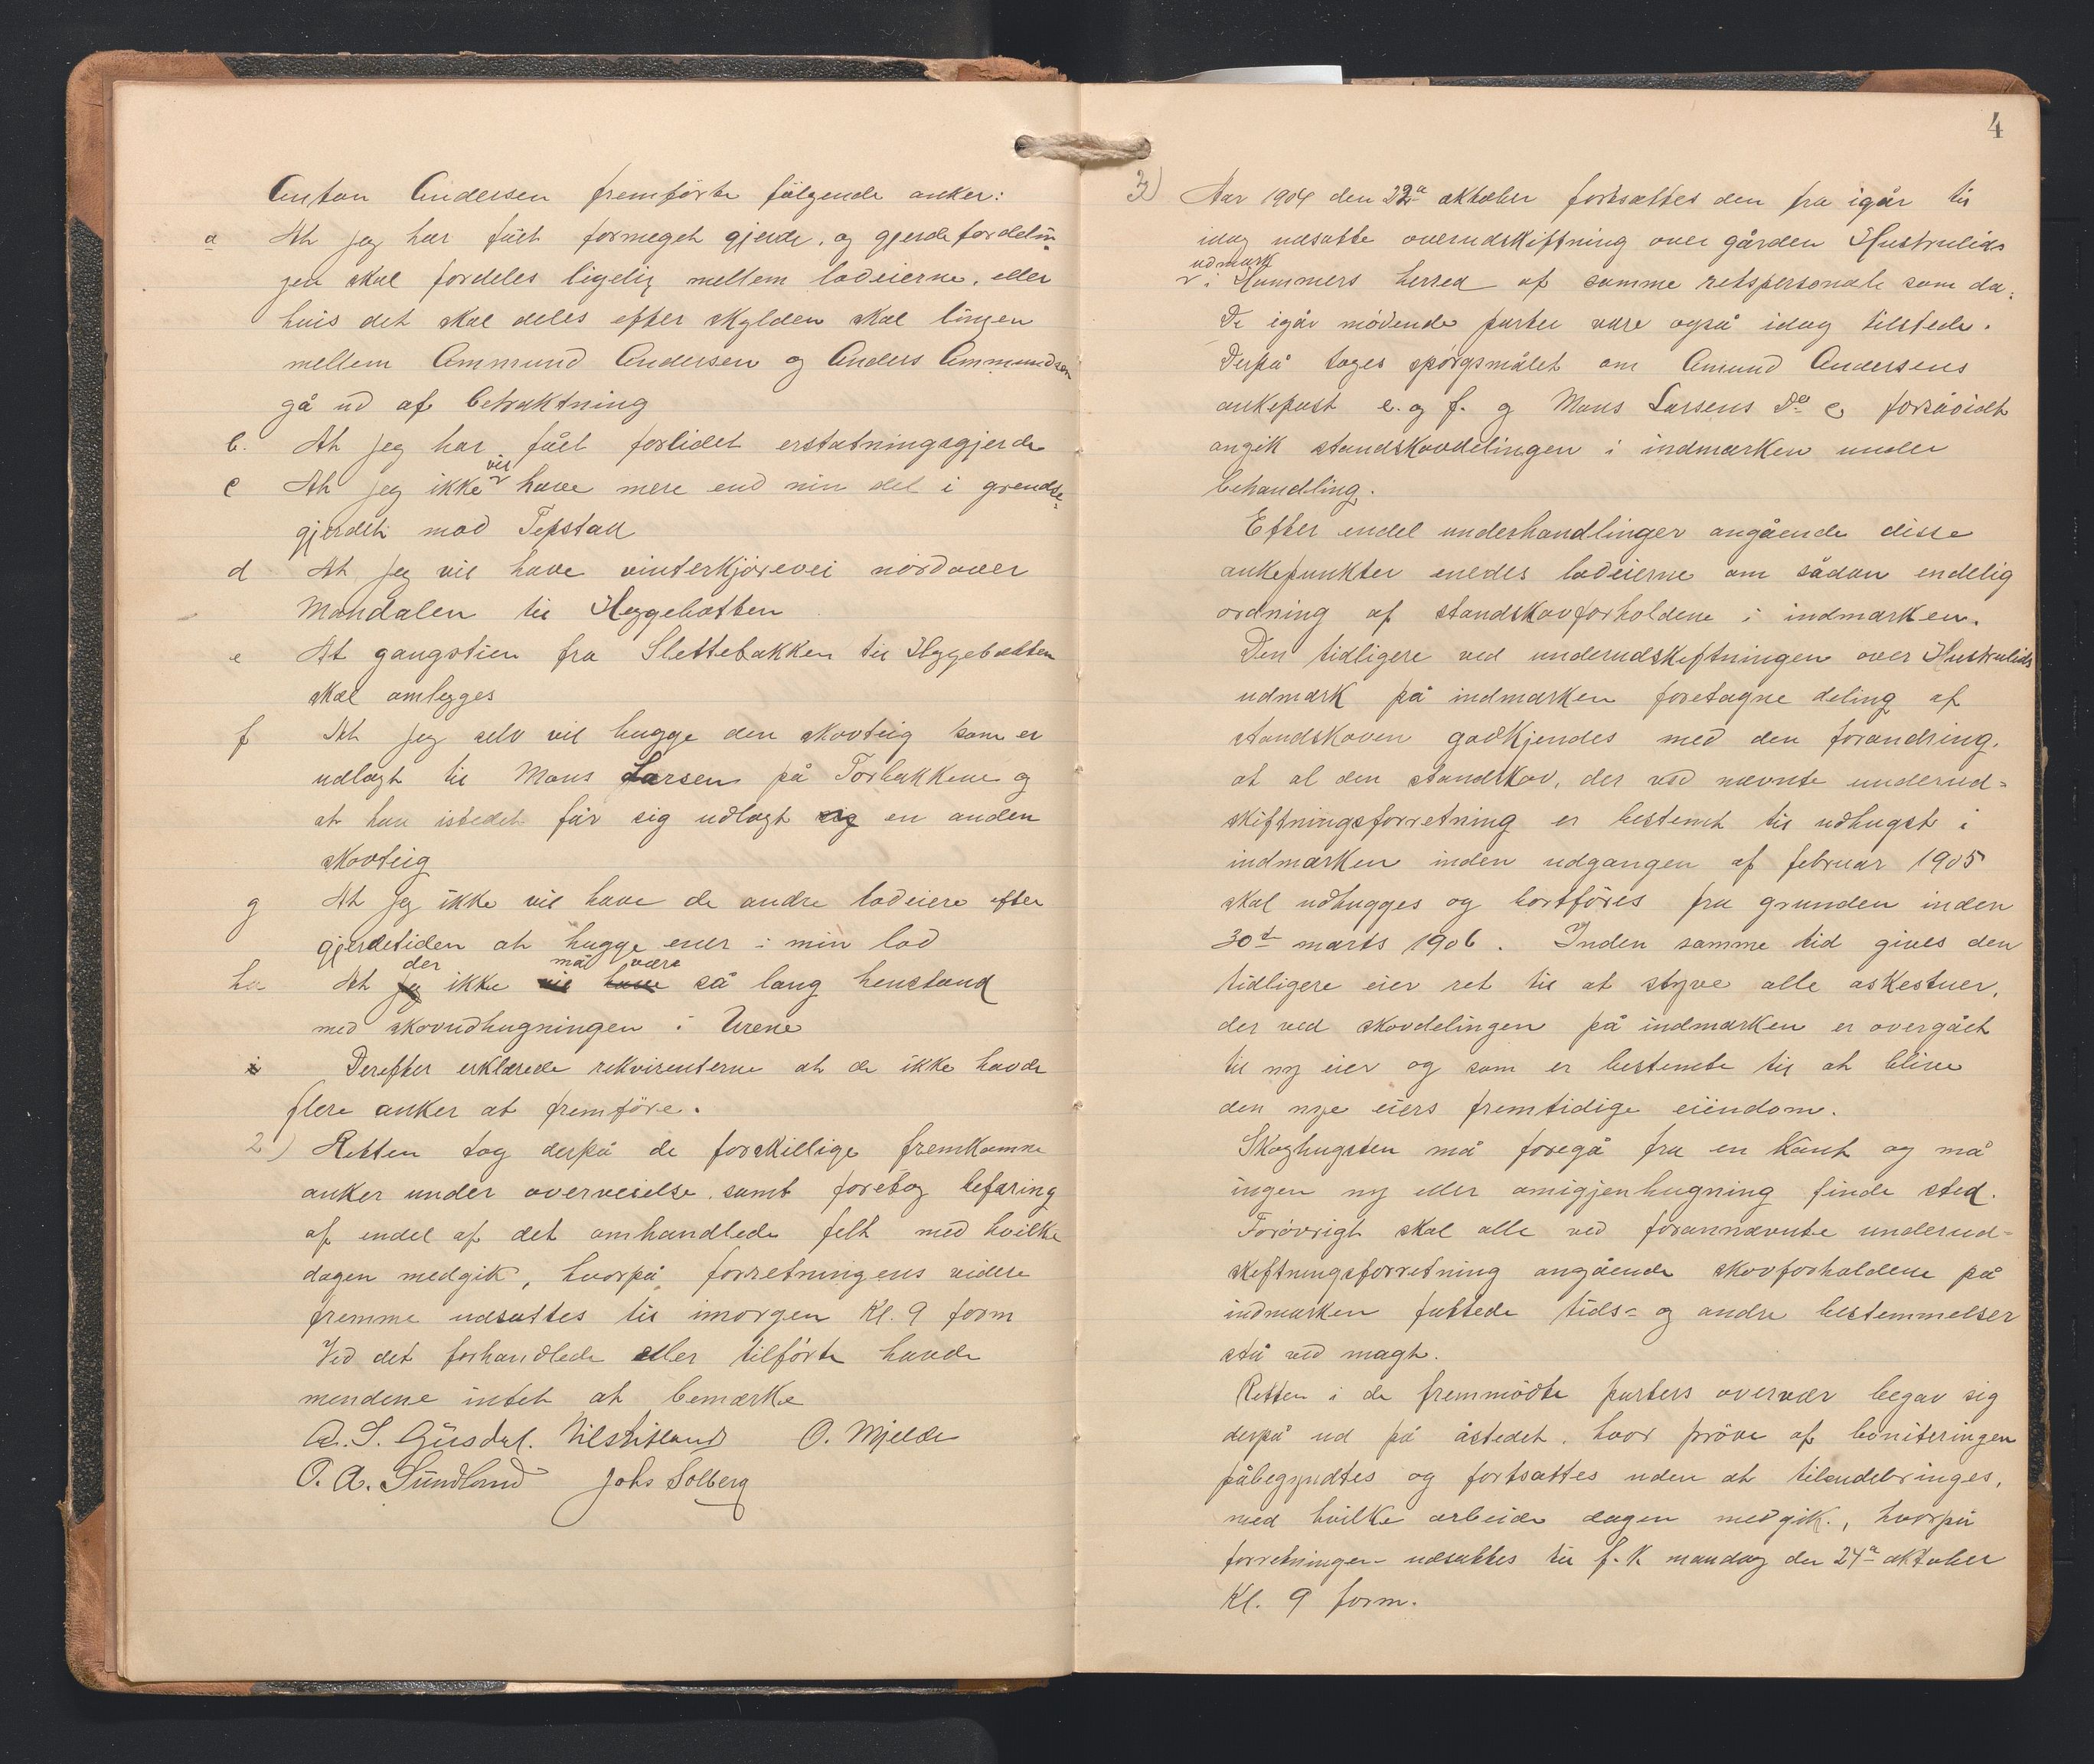 Anton Andersen fremførte følgende anker:
a At jeg har fået formeget gjerde, og gjerdefordelin
gen skal fordeles ligelig mellem lodeierne, eller
hvis det skal deles efter skylden skal linjen
mellem Ammund Andersen og Anders Ammundsen
gå ud af betraktning
b. At jeg har fået forlidet erstatningsgjerde
c At jeg ikke vil have mere end min del i grændse-
gjerdet mod Tepstad
d At jeg vil have vinterkjørevei nordover
Mandalen til Heggebotten
e At gangstien fra Slettebakken til Heggebotten
skal omlegges
f At jeg selv vil hugge den skovteig som er
udlagt til Mons Larsen på Torbakkene og
at han istedet får sig udlagt sig en anden
skovteig
g At jeg ikke vil have de andre lodeiere efter
gjerdetiden at hugge ener i min lod
der må være
h At jeg ikke vil have så lang henstand
med skovudhugningen i Urene
i Derefter erklærede rekvirenterne at de ikke havde
flere anker at fremføre.
2) Retten tog derpå de forskillige fremkomne
anker under overveielse samt foretog befaring
af endel af det omhandlede felt med hvilke
dagen medgik, hvorpå forretningens videre
fremme udsattes til imorgen Kl. 9 form
Ved det forhandlede eller tilførte havde
mendene intet at bemærke
A. S. Gusdal. Nils Litland O. Mjelde
O. A. Sundland Johs Solberg
4
3) Aar 1904 den 22de oktober fortsattes den fra igår til
idag udsatte overudskiftning over gården Hustrulids
udmark
i Hammers herred af samme retspersonale som da.
De igår mødende parter vare også idag tilstede.
Derpå toges spørgsmålet om Amund Andersens
ankepost e. og f. og Mons Larsens Do c forsåvidt
angik standskovdelingen i indmarken under
behandling.
Efter endel underhandlinger angående disse
ankepunkter enedes lodeierne om sådan endelig
ordning af standskovforholdene i indmarken.
Den tidligere ved underudskiftningen over Hustrulids
udmark på indmarken foretagne deling af
standskoven godkjendes med den forandring.
at al den standskov, der ved nævnte underud-
skiftningsforretning er bestemt til udhugst i
indmarken inden udgangen af februar 1905
skal udhugges og bortføres fra grunden inden
30te marts 1906. Inden samme tid gives den
tidligere eier ret til at styve alle askestuer,
der ved skovdelingen på indmarken er overgået
til ny eier og som er bestemte til at blive
den nye eiers fremtidige eiendom.
Skoghugsten må foregå fra en kant og må
ingen ny eller omigjenhugning finde sted.
Forøvrigt skal alle ved forannævnte underud-
skiftningsforretning angående skovforholdene på
indmarken fattede tids- og andre bestemmelser
stå ved magt.
Retten i de fremmødte parters overvær begav sig
derpå ud på åstedet, hvor prøve af boniteringen
påbegyndtes og fortsattes uden at tilendebringes,
med hvilke arbeide dagen medgik, hvorpå
forretningen udsattes til f. k mandag den 24de oktober
Kl. 9 form.